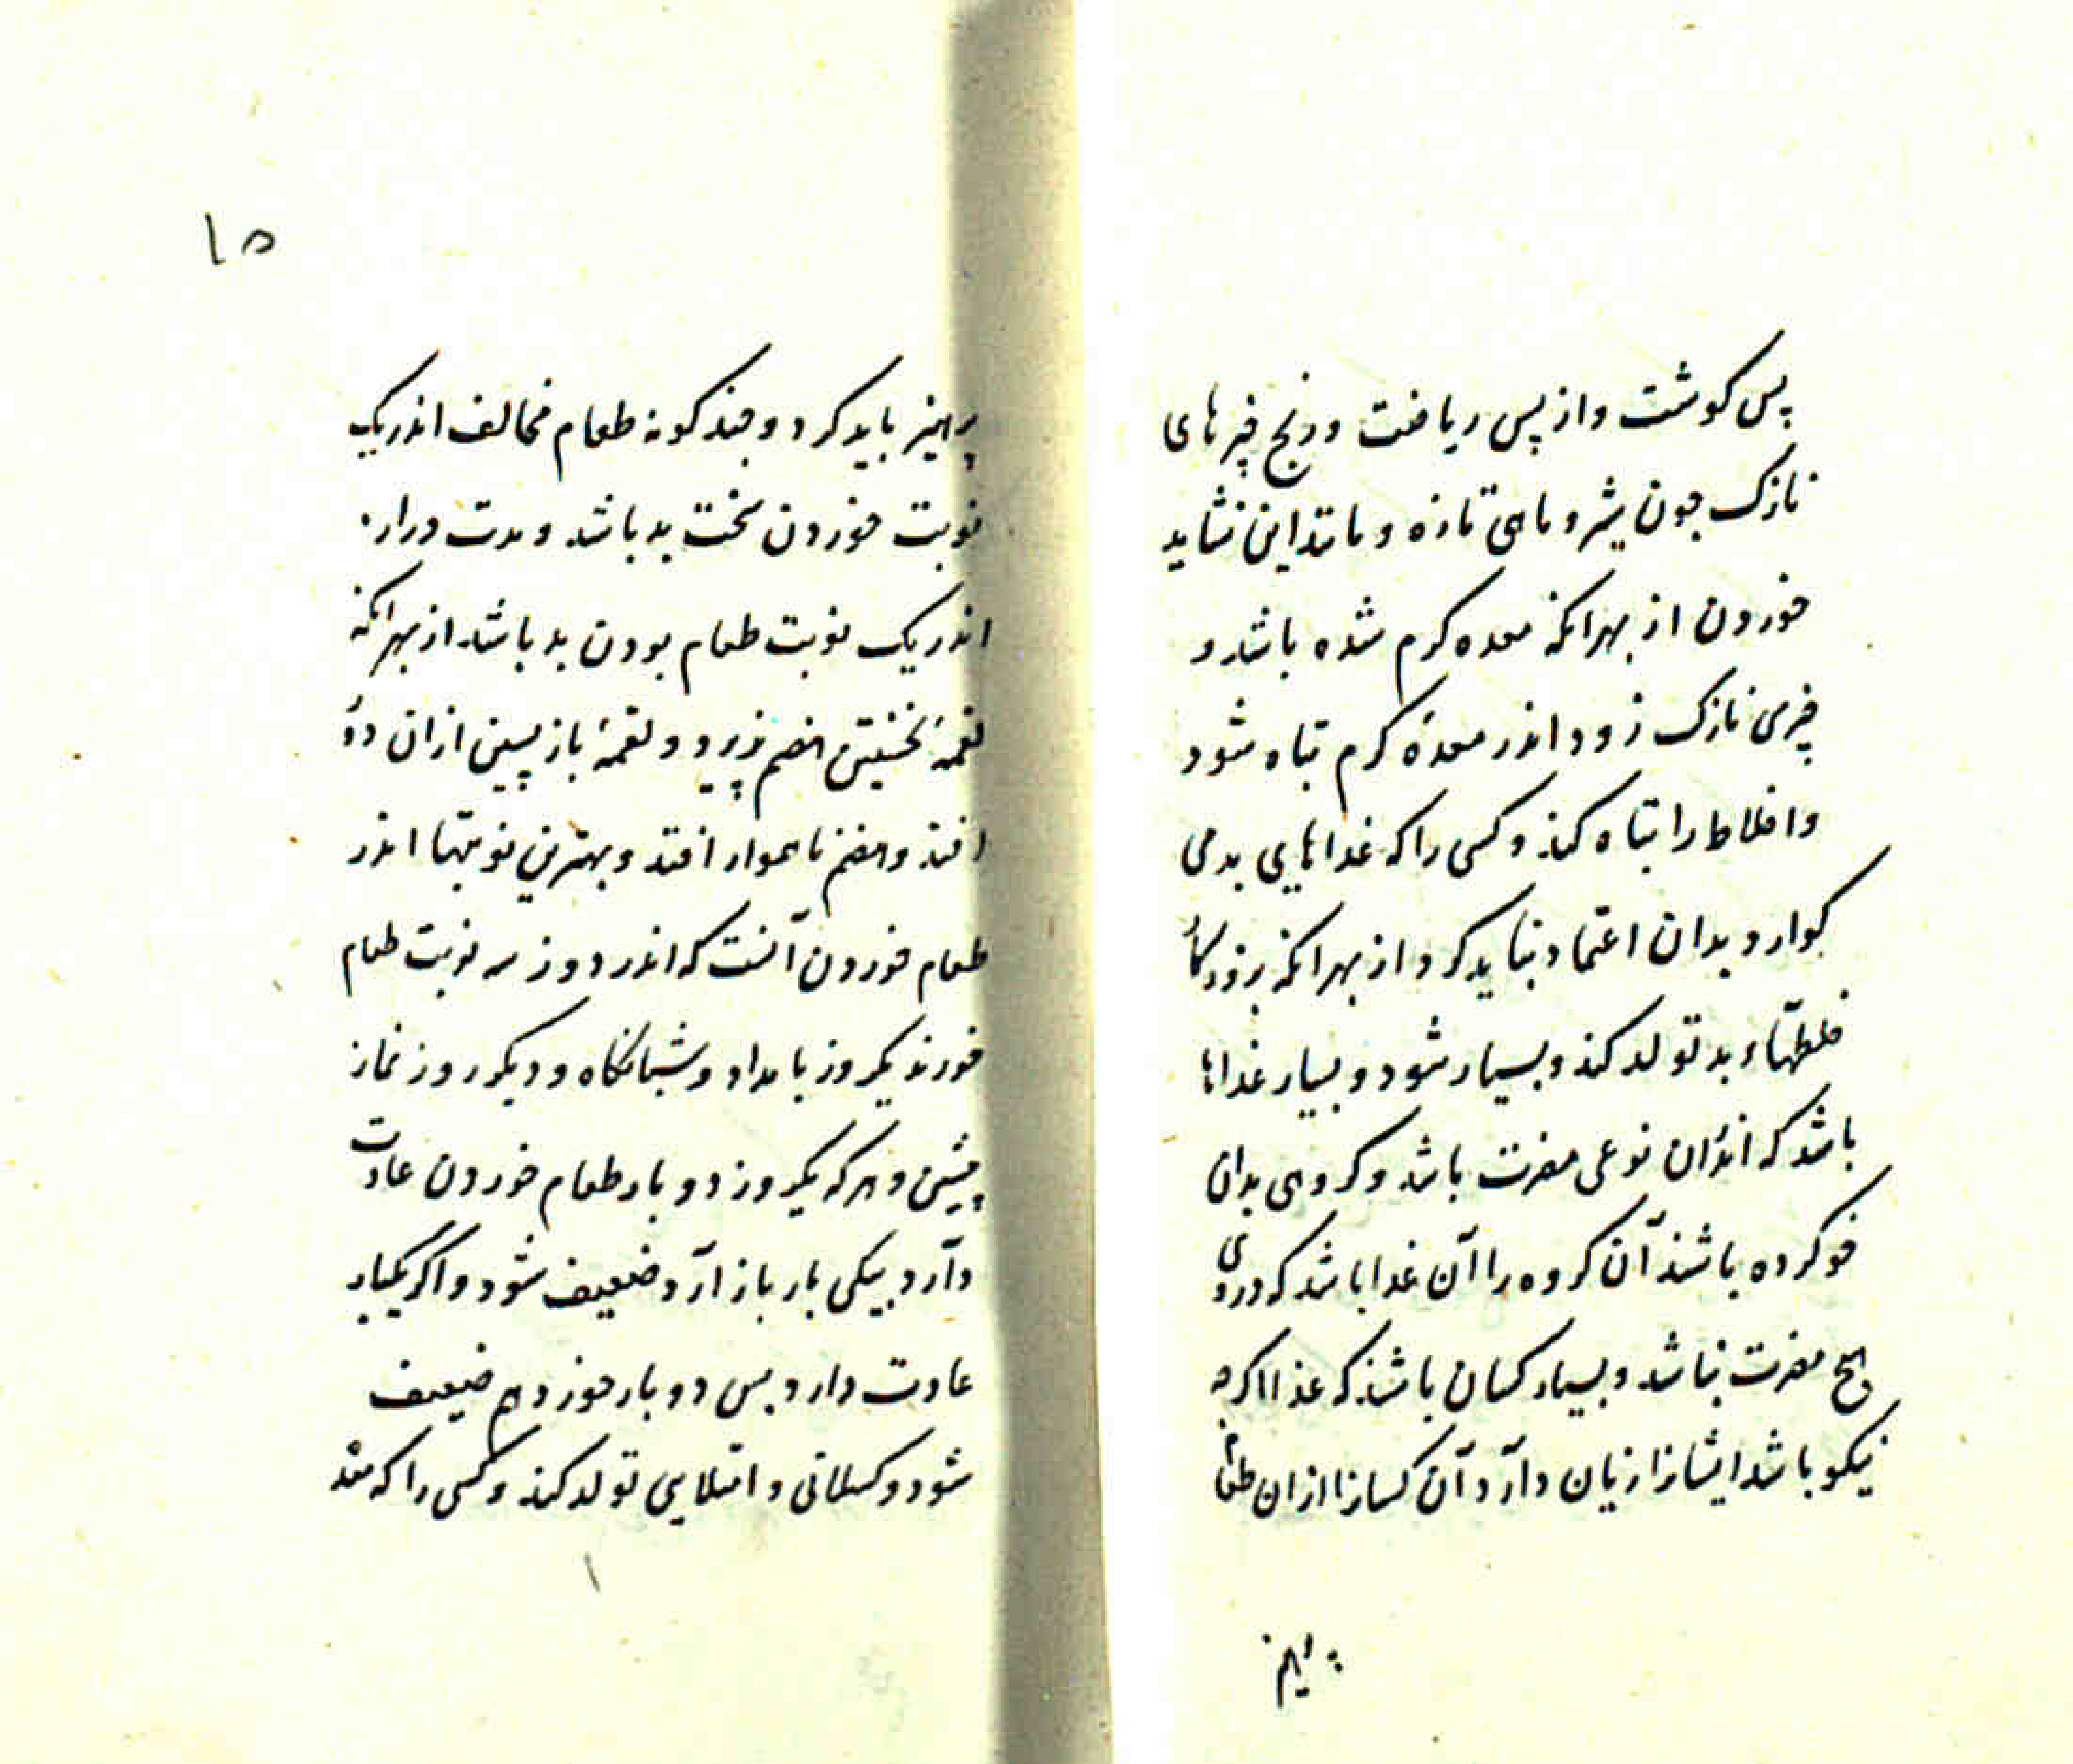 پس کوشت و از پس ریاضت و رنج چیزهای
نازک چون شیر و ماهی تازه و مانند این نشاید
خوردن از بهر آنکه معده کرم شده باشد و
چیزی نازک زود اندر معدهٔ کرم تباه شود
و اخلاط را تباه کند و کسی را که غداهایی بد می
کوارد بدان اعتماد نباید کرد از بهر آنکه بروزکار
خلطهاء بد تولد کند و بسیار شود و بسیار غداها
باشد که اندران نوعی مضرت باشد و کروهی بدان
خو کرده باشند آن کروه را آن غدا باشد که در وی
هیچ مضرت نباشد و بسیار کسان باشند که غذا اکرچه
نیکو باشد ایشانرا زیان دارد آن کسانرا ازان طعام
پرهیز
۱۵
پرهیز باید کرد و چند کونه طعام مخالف اندر یک
نوبت خوردن سخت بد باشد و مدت دراز
اندر یک نوبت طعام بودن بد باشد از بهر آنکه
لقمهٔ نخستین هضم پذیرد و لقمهٔ باز پسین ازان دور
افتد و هضم ناهموار افتد و بهترین نوبتها اندر
طعام خوردن آنست که اندر دو روز سه نوبت طعام
خورند یکروز بامداد و شبانکاه و دیکر روز نماز
پیشین و هر که یکروز دو بار طعام خوردن عادت
دارد بیکی بار باز آرد ضعیف شود و اکر یکبار
عادت دارد پس دو بار خورد هم ضعیف
شود و کسلانی و امتلایی تولد کند و کسی را که معده